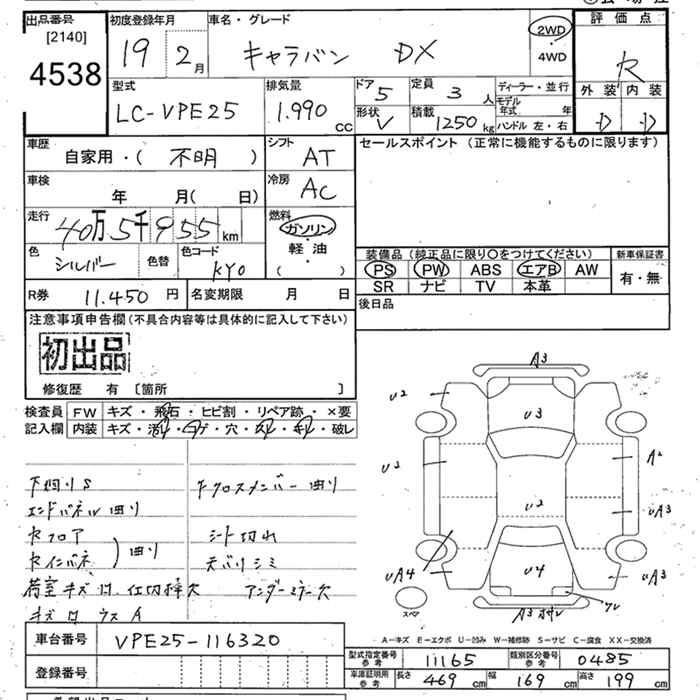 出品番号 初度登録年月 車名・グレード 評価点
[2140] 19 2月 キャラバン DX 2WD
4538 4WD
型式 排気量 ドア 5 定員 3人 ディーラー・並行 外装 内装
LC-VPE25 1.990cc 形状 V 積載 1250kg モデル年式 年 D D
ハンドル 左・右
車歴 シフト セールスポイント (正常に機能するものに限ります)
自家用・( 不明 ) AT
車検 冷房
年 月( 日) AC
走行 燃料
40万5千955km ガソリン
色 色替 色コード 軽・油 装備品 (純正品に限り○をつけてください) 新車保証書
シルバー KY0 ( ・ ) PS PW ABS エアB AW 有・無
SR ナビ TV 本革
R券 11.450円 名変期限 月 日 後日品
注意事項申告欄(不具合内容等は具体的に記入して下さい)
初出品
修復歴 有 〔箇所 〕
検査員 FW キズ・飛石・ヒビ割・リペア跡・×要
記入欄 内装 キズ・汚レ・コゲ・穴・スレ・キレ・破レ
A3
U2
U3
U3 A2
下廻りS 下クロスメンバー曲り
エンドパネル曲り U2 UA3
Rフロア シート切れ
Rインパネ 曲り 天バリシミ
UA4 U4 UA3
荷室キズ有.仕切棒欠 アンダーミラー欠
キズ有ウスA スペア A3
A-キズ E-エクボ U-凹み W-補修跡 S-サビ C-腐食 XX-交換済
車台番号 VPE25-116320
型式指定番号 参考 11165 類別区分番号 参考 0485
登録番号 車庫証明用 参考 長さ 469cm 幅 169cm 高さ 199cm